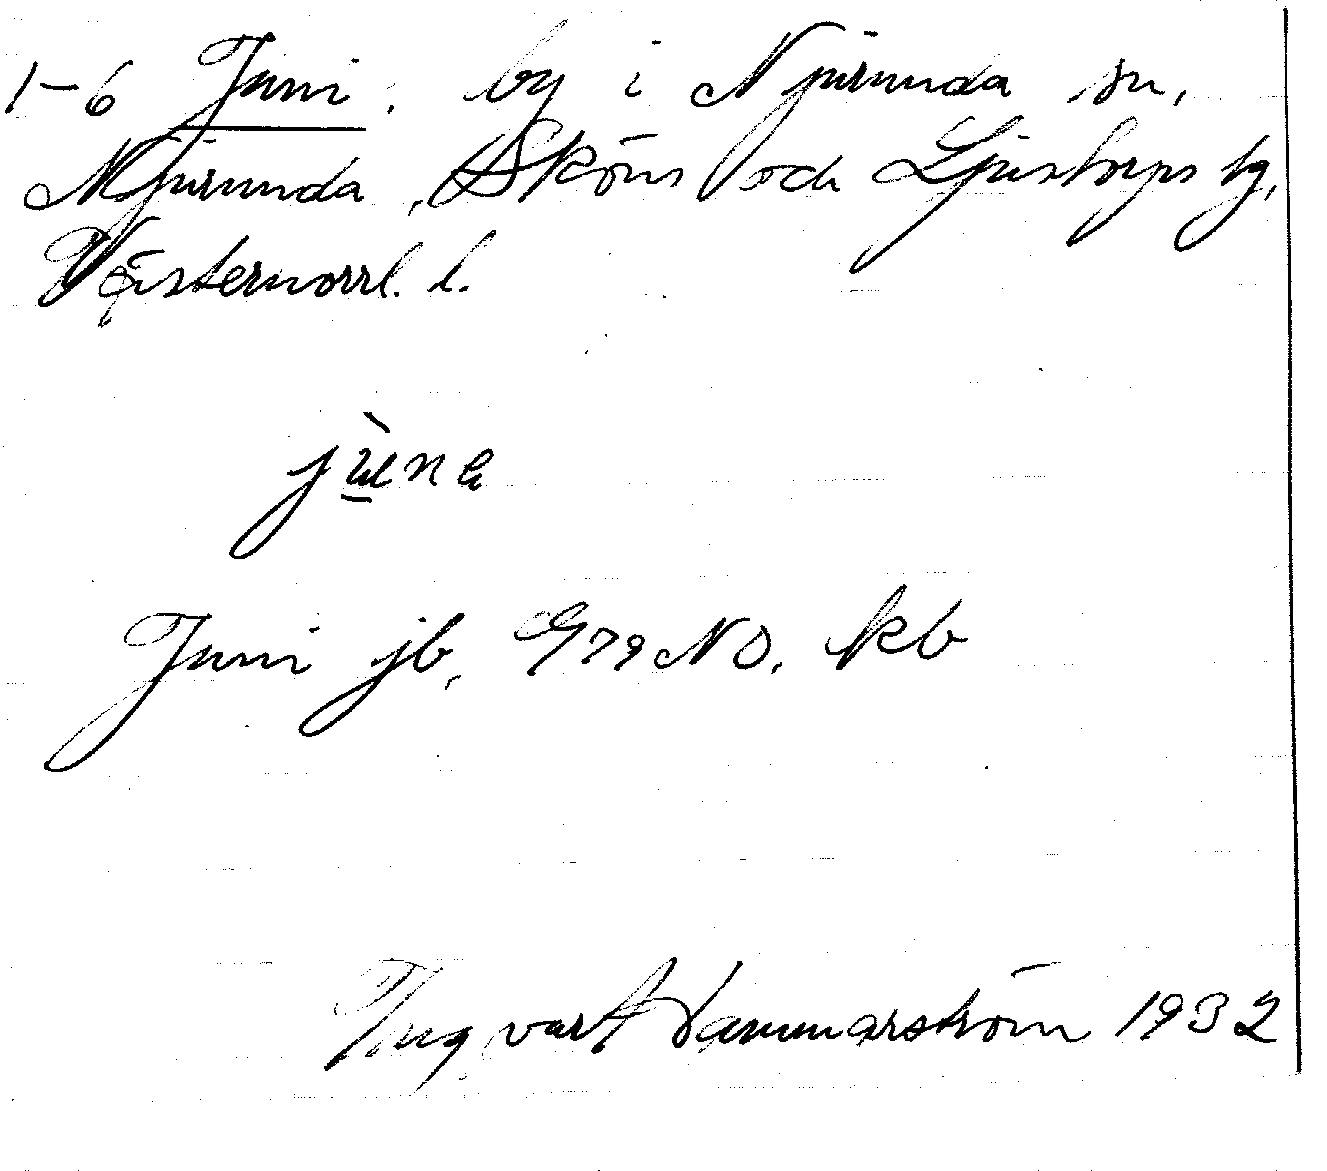 1-6 Juni, by i Njurunda sn,
Njurunda, Sköns och Ljustorps tg,
Västernorrl. l.
Juni jb, G79NO. kb
Ingvart Hammarström 1932